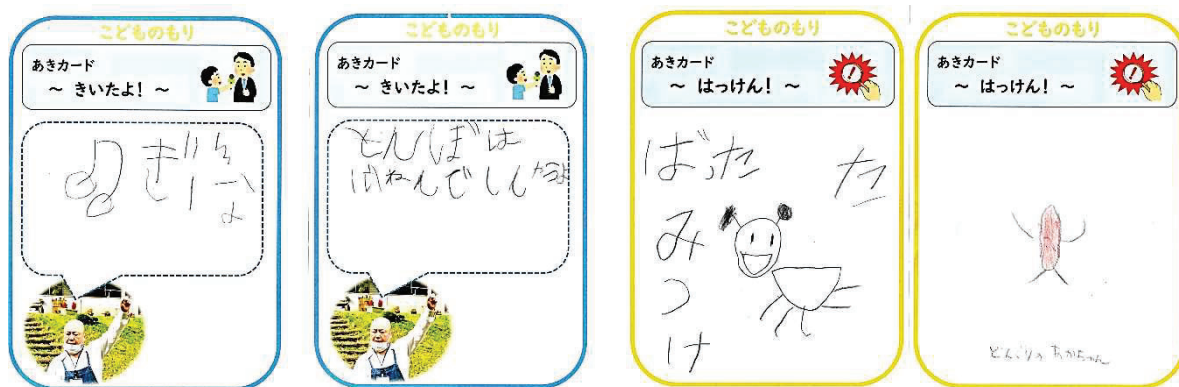 こどものもり
あきカード
～ きいたよ! ～
こどものもり
あきカード
～ きいたよ! ～
とんぼは
こどものもり
あきカード
～ はっけん! ～
ばった
みつけ
た
こどものもり
あきカード
～ はっけん! ～
どんぐりのあかちゃん